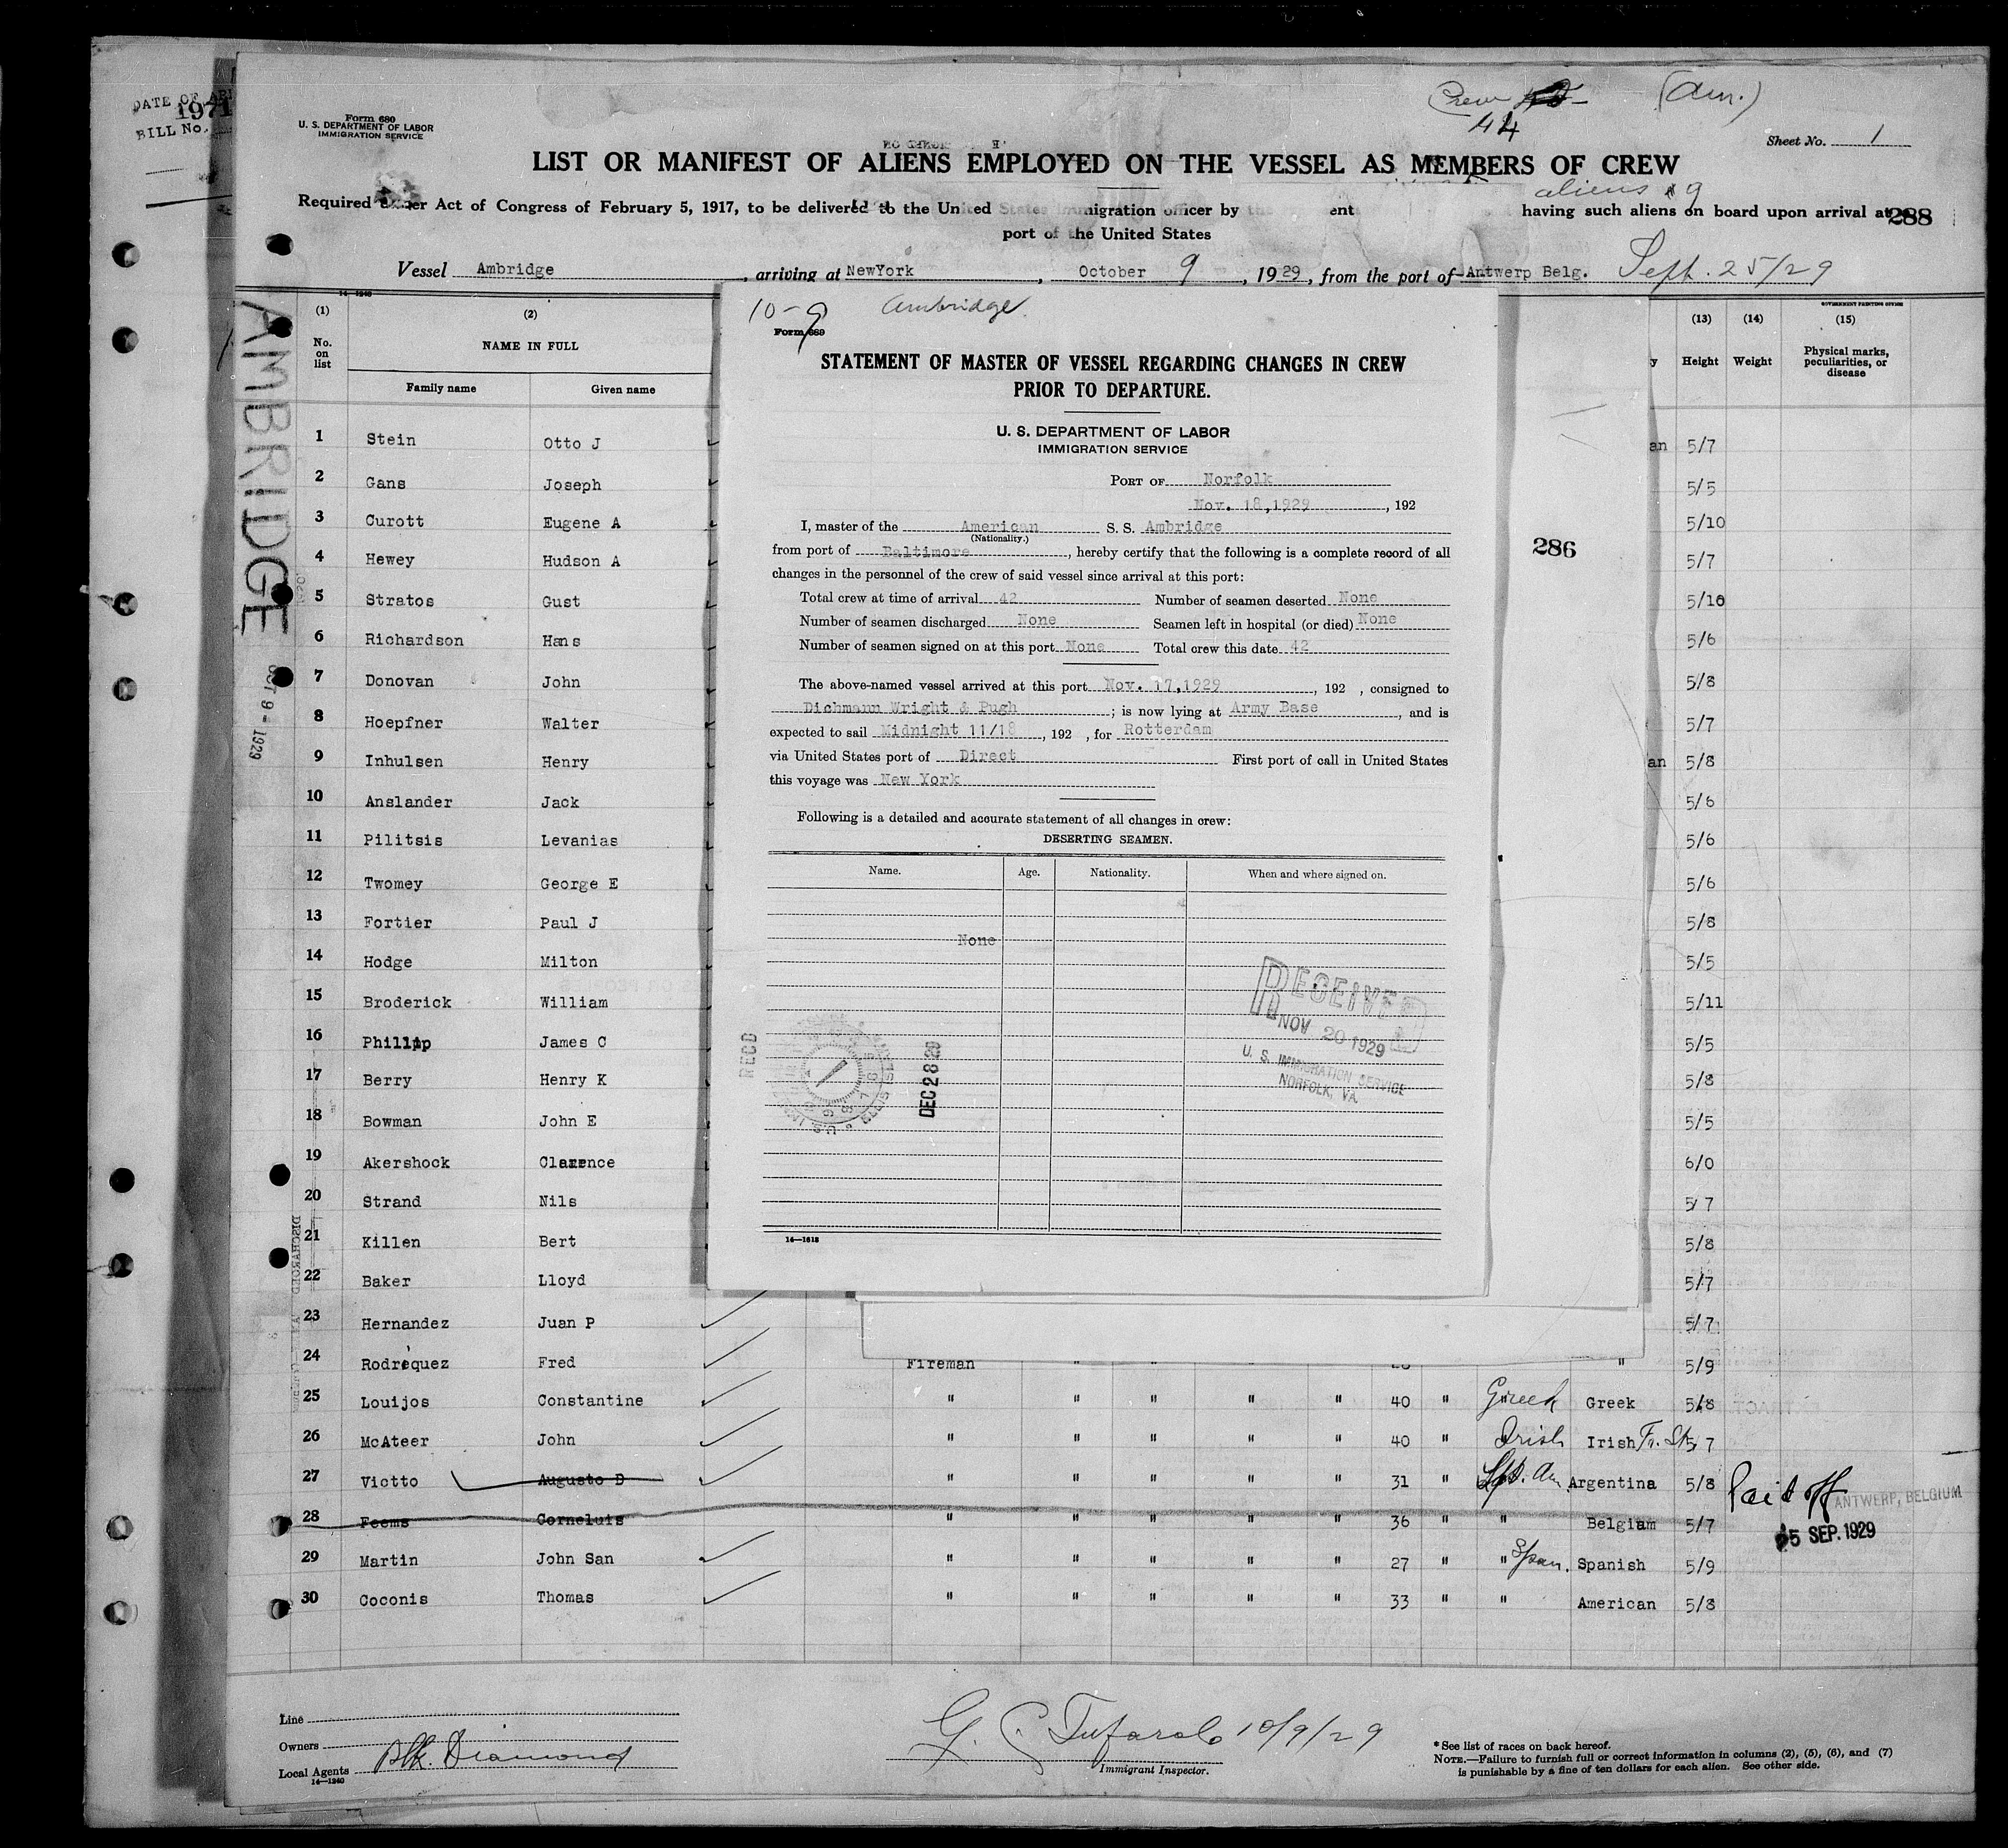 DATE OF
1971
BILL No.
Crew
44
(Am.)
Form 680
U. S. DEPARTMENT OF LABOR
IMMIGRATION SERVICE
Sheet No. 1
LIST OR MANIFEST OF ALIENS EMPLOYED ON THE VESSEL AS MEMBERS OF CREW
aliens 9
Required Act of Congress of February 5, 1917, to be delivered to the United States immigration officer by the having such aliens on board upon arrival at
288
port of the United States
Vessel Ambridge, arriving at NewYork, October 9, 1929, from the port of Antwerp Belg. Sept. 25/29
AMBRIDGE
OCT 9 - 1929
(1) (2) (13) (14) (15)
No. on list NAME IN FULL Height Weight Physical marks, peculiarities, or disease
Family name Given name
GOVERNMENT PRINTING OFFICE
1 Stein Otto J an 5/7
2 Gans Joseph 5/5
3 Curott Eugene A 5/10
4 Hewey Hudson A 5/7
5 Stratos Gust 5/10
6 Richardson Hans 5/6
7 Donovan John 5/8
8 Hoepfner Walter 5/7
9 Inhulsen Henry an 5/8
10 Anslander Jack 5/6
11 Pilitsis Levanias 5/6
12 Twomey George E 5/6
13 Fortier Paul J 5/8
14 Hodge Milton 5/5
15 Broderick William 5/11
16 Phillip James C 5/5
17 Berry Henry K 5/8
18 Bowman John E 5/5
19 Akershock Clarence 6/0
20 Strand Nils 5/7
21 Killen Bert 5/8
22 Baker Lloyd 5/7
23 Hernandez Juan P 5/7
24 Rodrequez Fred Fireman " " " " " 5/9
25 Louijos Constantine " " " " " 40 " Greek Greek 5/8
26 McAteer John " " " " " 40 " Irish Irish 5/7
27 Victto Augusto D " " " " " 31 " Argentina 5/8
28 Feems Corneluis " " " " " 36 " " Belgian 5/7 Paid off ANTWERP, BELGIUM
5 SEP. 1929
29 Martin John San " " " " " 27 " " Span. Spanish 5/9
30 Coconis Thomas " " " " " 33 " " American 5/8
10-9 Ambridge
Form 689
STATEMENT OF MASTER OF VESSEL REGARDING CHANGES IN CREW
PRIOR TO DEPARTURE.
U. S. DEPARTMENT OF LABOR
IMMIGRATION SERVICE
PORT OF Norfolk
Nov. 18,1929, 192
I, master of the American S. S. Ambridge
(Nationality.)
from port of Baltimore, hereby certify that the following is a complete record of all
changes in the personnel of the crew of said vessel since arrival at this port:
Total crew at time of arrival 42 Number of seamen deserted None
Number of seamen discharged None Seamen left in hospital (or died) None
Number of seamen signed on at this port None Total crew this date 42
The above-named vessel arrived at this port Nov. 17,1929, 192 , consigned to
Dichmann Wright & Pugh; is now lying at Army Base, and is
expected to sail Midnight 11/18, 192 , for Rotterdam
via United States port of Direct First port of call in United States
this voyage was New York
Following is a detailed and accurate statement of all changes in crew:
DESERTING SEAMEN.
Name. Age. Nationality. When and where signed on.
None
RECEIVED
NOV 20 1929
U. S. IMMIGRATION SERVICE
NORFOLK, VA.
RECD
DEC 28 29
14—1618
286
Line
Owners
Local Agents Blk. Diamond
14—1240
G. C. Tufarolo 10/9/29
Immigrant Inspector.
* See list of races on back hereof.
NOTE.—Failure to furnish full or correct information in columns (2), (5), (6), and (7)
is punishable by a fine of ten dollars for each alien. See other side.